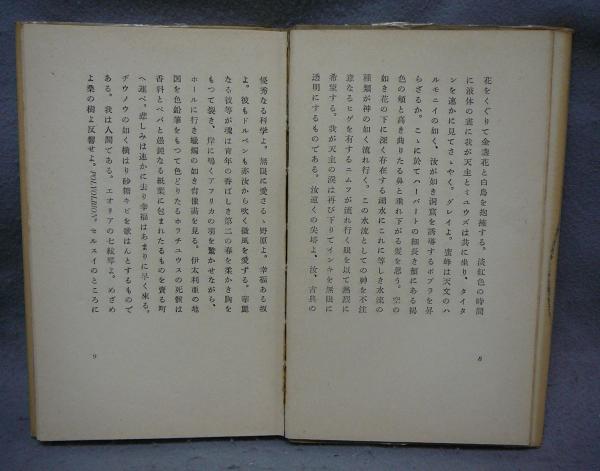 花をくぐりて金盞花と白鳥を抱擁する。淡紅色の時間
に液体の裏に我が天主とミユウズは共に坐り、タイタ
ンを遠かに見てさゝやく。グレイよ。蜜蜂は天文のハ
ルモニイの如く、汝が如き洞窟を誘導するポプラを昇
らざるか。こゝに於てハーバートの細長き顔にある褐
色の頬と高き曲りたる鼻と垂れ下がる髪を思う。空の
如き花の下に深く存在する湧水にこれに等しき水流の
種類が神の如く流れ行く。この水流としての神を不注
意なるヒゲを有するニムフが流れ行く眼を以て熱烈に
希望する。我が天主の涙は再び下りてインキを無限に
透明にするものである。汝遠くの尖塔よ、汝、古典の
8
優秀なる科学よ。無限に愛さるゝ野原よ。幸福ある奴
よ。彼もドルベンも赤汝から吹く微風を愛する。華麗
なる彼等が魂は青年の香ばしき第二の春を柔かき胸を
もつて裂き、岸に鳴くアフリカの羽を驚かせながら、
ホールに行き蠟燭の如き肖像画を見る。伊太利亜の地
図を色鉛筆をもつて色どりたるホラチユウスの死骸は
香料とペパと愚鈍なる紙葉に包まれたるものを賣る町
へ運べ。悲しみは速かに去り幸福はあまりに早く來る。
ヂウノウの如く横はり砂糖キビを歌はんとするもので
ある。我は人間である。エオリアの七絃琴よ。めざめ
よ桑の樹よ反響せよ。POLYOLBION。セルスイのところに
9